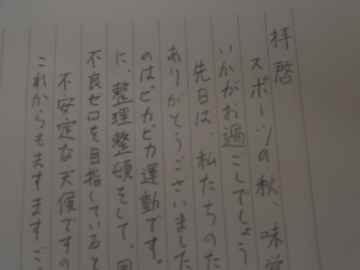 拝啓
スポーツの秋、味覚
いかがお過ごしでしょう
先日は、私たちのた
ありがとうございました
のはピカピカ運動です。
に、整理整頓をして、
不良ゼロを目指していると
不安定な天候ですの
これからもますますご